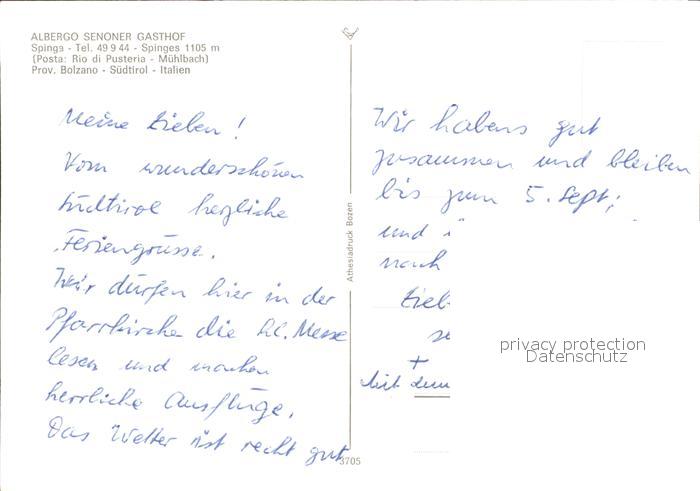 ALBERGO SENONER GASTHOF
Spinga - Tel. 49 9 44 - Spinges 1105 m
(Posta: Rio di Pusteria - Mühlbach)
Prov. Bolzano - Südtirol - Italien
Meine Lieben!
Vom wunderschönen
Südtirol herzliche
Feriengrüsse.
Wir dürfen hier in der
Pfarrkirche die hl. Messe
lesen und machen
herrliche Ausflüge.
Das Wetter ist recht gut
Athesiadruck Bozen
3705
Wir habens gut
zusammen und bleiben
bis zum 5. Sept;
und
nach
Lieb
+
privacy protection
Datenschutz